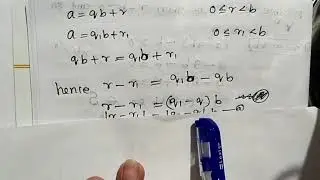 a = qb + r 0 ≤ r < b
a = q₁b + r₁ 0 ≤ r₁ < b
qb + r = q₁b + r₁
hence r - r₁ = q₁b - qb
r - r₁ = (q₁ - q) b